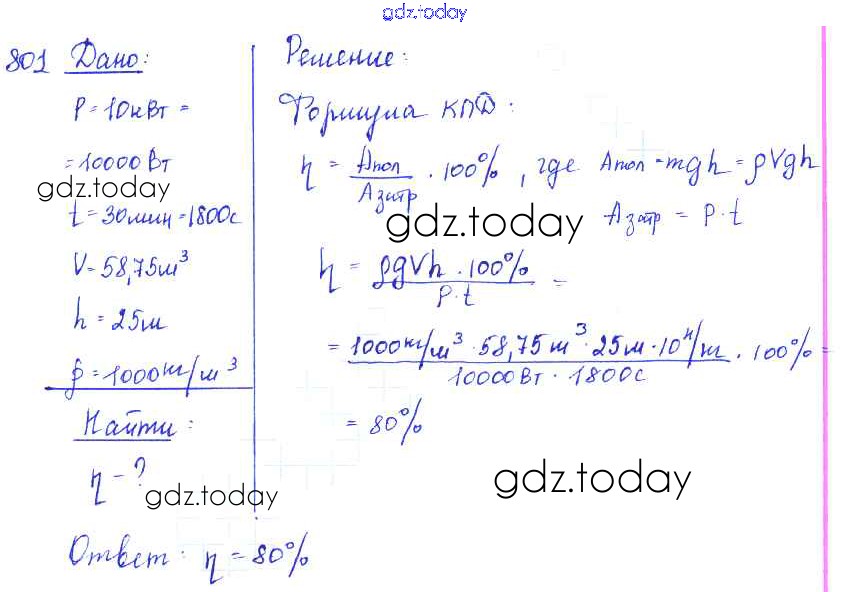 gdz.today
801 Дано:
P = 10кВт =
= 10000 Вт
gdz.today
t = 30мин = 1800с
V = 58,75м³
h = 25м
ρ = 1000кг/м³
Найти:
η - ?
gdz.today
Ответ: η = 80%
Решение:
Формула КПД:
η = Aпол / Aзатр · 100%, где Aпол = mgh = ρVgh
gdz.today
Aзатр = P·t
η = ρgVh · 100% / P·t =
= 1000кг/м³ · 58,75м³ · 25м · 10Н/кг / 10000Вт · 1800с · 100% =
= 80%
gdz.today